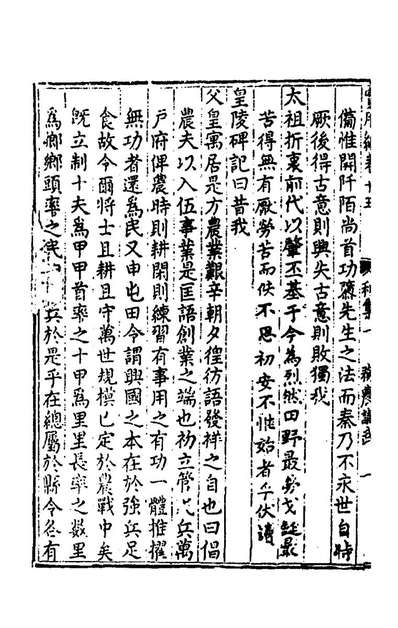 備惟開阡陌尚首功隳先生之法而秦乃不永世自時
厥後得古意則興失古意則敗獨我
太祖折衷前代以肇丕基于今為烈然田野最勞戈鋋最
苦得無有厭勞苦而佚不思初安不惟始者乎伏讀
皇陵碑記曰昔我
父皇寓居是方農業艱辛朝夕徬彷語發祥之自也曰倡
農夫以入伍事業是匡語創業之端也初立管兵萬
户府俾農時則耕閒則練習有事用之有功一體推擢
無功者還為民又申屯田令謂興國之本在於強兵足
食故令爾將士且耕且守萬世規模已定於農戰中矣
既立制十夫為甲甲首率之十甲為里里長率之數里
為鄉鄉頭率之民 兵於是乎在總屬於縣令各有